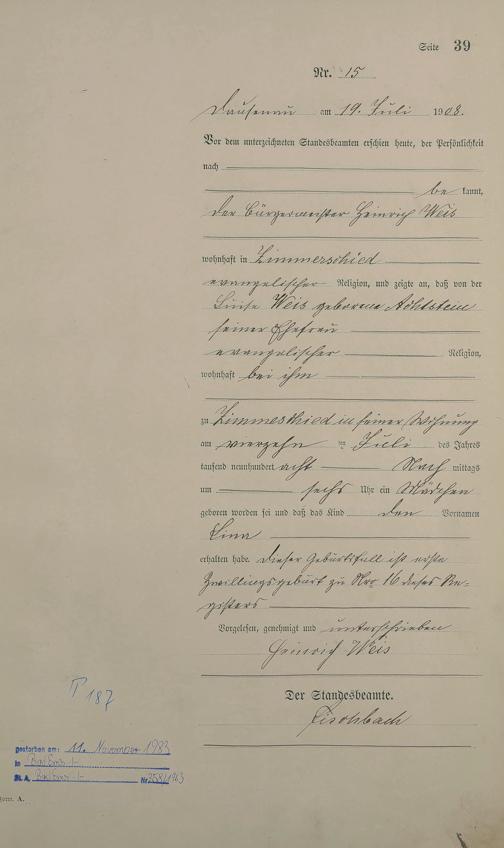 Seite 39
Nr. 15
Dausenau am 19. Juli 1908.
Vor dem unterzeichneten Standesbeamten erschien heute, der Persönlichkeit
nach
be kannt,
der Bürgermeister Heinrich Weis
wohnhaft in Zimmerschied
evangelischer Religion, und zeigte an, daß von der
Luise Weis geborene Achtstein
seiner Ehefrau
evangelischer Religion,
wohnhaft bei ihm
zu Zimmerschied in seiner Wohnung
am vierzehn ten Juli des Jahres
tausend neunhundert acht Nach mittags
um sechs Uhr ein Mädchen
geboren worden sei und daß das Kind den Vornamen
Lina
erhalten habe. Dieser Geburtsfall ist erste
Zwillingsgeburt zu Nro 16 dieses Re-
gisters
Vorgelesen, genehmigt und unterschrieben
Heinrich Weis
Der Standesbeamte.
Fischbach
T 187
gestorben am: 11. November 1983
in Bad Ems
St. A. Bad Ems Nr. 358/1983
Form. A.